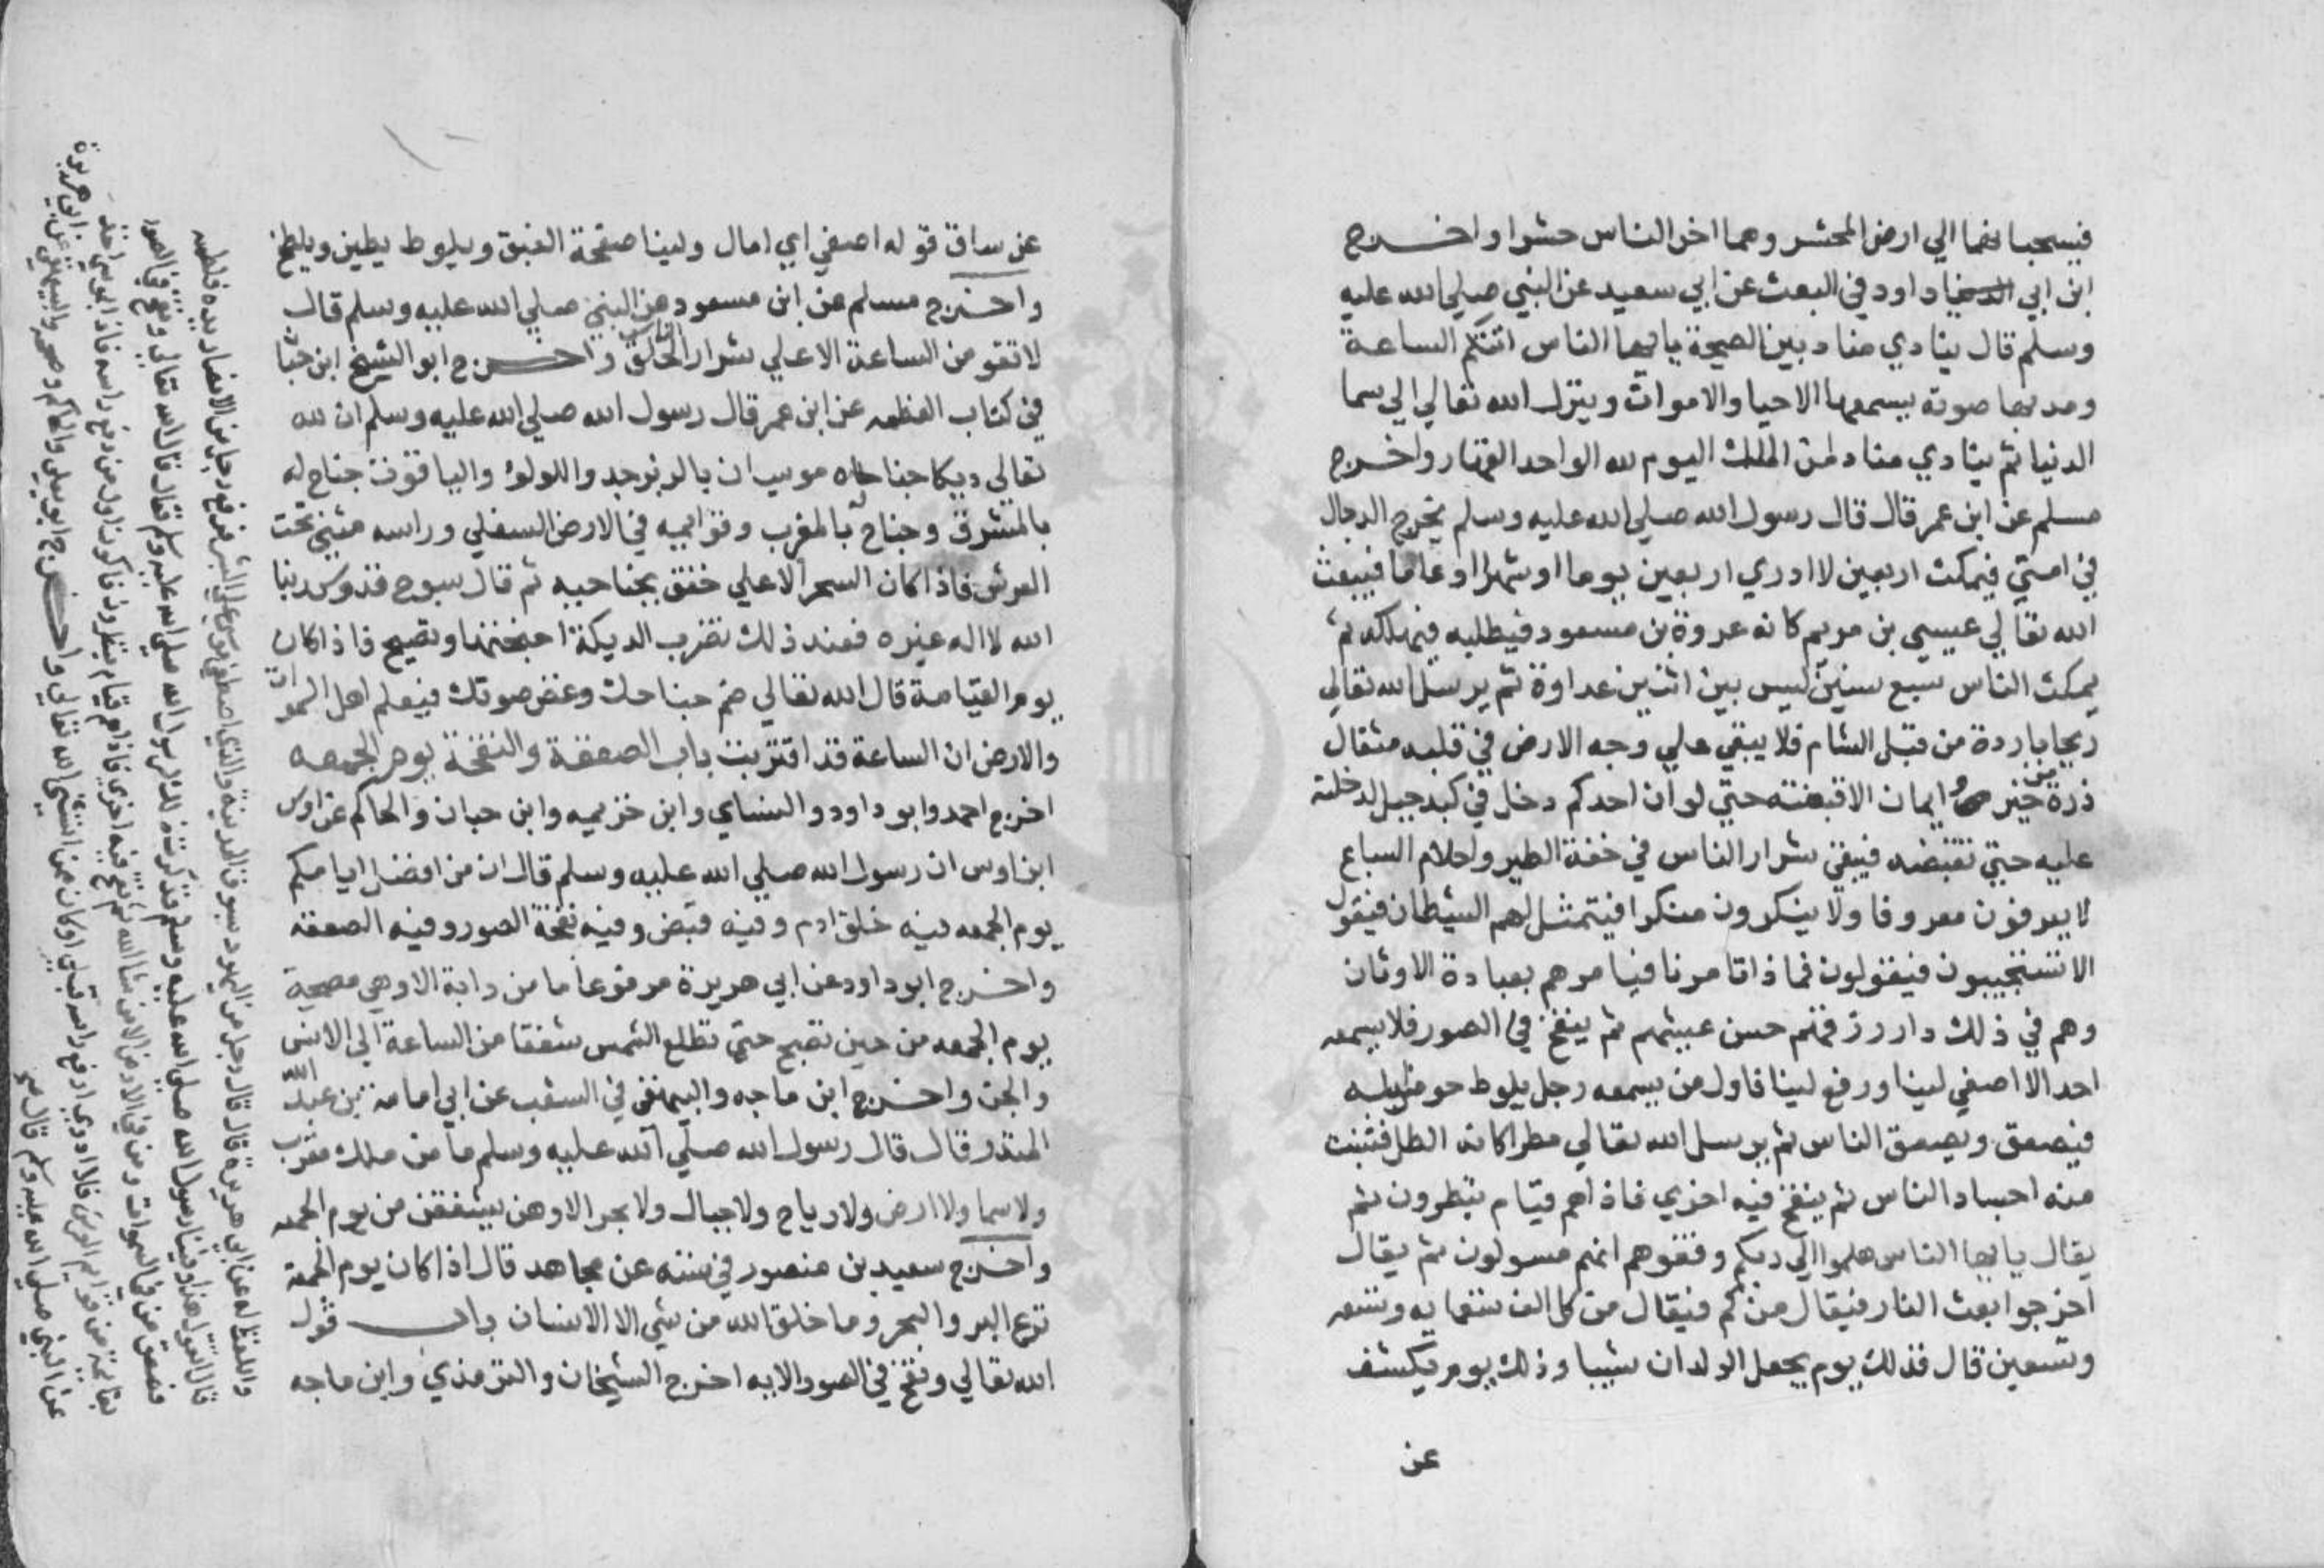 فيسحبانهما الي ارض المحشر وهما اخر الناس حشرا واخرج
ابن ابي داود في البعث عن ابي سعيد عن النبي صلي الله عليه
وسلم قال ينادي مناد بين الصيحة يا ايها الناس اتتكم الساعة
ومد بها صوته يسمعها الاحيا والاموات وينزل الله تعالي الي سما
الدنيا ثم ينادي مناد لمن الملك اليوم لله الواحد القهار واخرج
مسلم عن ابن عمر قال قال رسول الله صلي الله عليه وسلم يخرج الدجال
في امتي فيمكث اربعين لا ادري اربعين يوما او شهرا او عاما فيبعث
الله تعالي عيسي بن مريم كانه عروة بن مسعود فيطلبه فيهلكه ثم
يمكث الناس سبع سنين ليس بين اثنين عداوة ثم يرسل الله تعالي
ريحا باردة من قبل الشام فلا يبقي علي وجه الارض في قلبه مثقال
ذرة من خير او ايمان الا قبضته حتي لو ان احدكم دخل في كبد جبل لدخلته
عليه حتي تقبضه فيبقي شرار الناس في خفة الطير واحلام السباع
لا يعرفون معروفا ولا ينكرون منكرا فيتمثل لهم الشيطان فيقول
الا تستجيبون فيقولون فماذا تامرنا فيامرهم بعبادة الاوثان
وهم في ذلك دار رزقهم حسن عيشهم ثم ينفخ في الصور فلا يسمعه
احد الا اصغي لينا ورفع لينا فاول من يسمعه رجل يلوط حوض ابله
فيصعق ويصعق الناس ثم يرسل الله تعالي مطرا كانه الطل فتنبت
منه اجساد الناس ثم ينفخ فيه اخري فاذا هم قيام ينظرون ثم
يقال يا ايها الناس هلموا الي ربكم وقفوهم انهم مسولون ثم يقال
اخرجوا بعث النار فيقال من كم فيقال من كل الف تسعمايه وتسعه
وتسعين قال فذلك يوم يجعل الولدان شيبا وذلك يوم يكشف
عن
عن ساق قوله اصغي اي امال ولينا صفحة العنق ويلوط يطين ويلطخ
واخرج مسلم عن ابن مسعود عن النبي صلي الله عليه وسلم قال
لا تقوم الساعة الا علي شرار الناس واخرج ابو الشيخ ابن حبان
في كتاب العظمه عن ابن عمر قال رسول الله صلي الله عليه وسلم ان لله
تعالي ديكا جناحاه موشيان بالزبرجد واللولو والياقوت جناح له
بالمشرق وجناح له بالمغرب وقوايمه في الارض السفلي وراسه مثني تحت
العرش فاذا كان السحر الاعلي خفق بجناحيه ثم قال سبوح قدوس ربنا
الله لا اله غيره فعند ذلك تضرب الديكة اجنحتها وتصيح فاذا كان
يوم القيامة قال الله تعالي ضم جناحك وغض صوتك فيعلم اهل السموات
والارض ان الساعة قد اقتربت باب الصعقة والنفخة يوم الجمعه
اخرج احمد وابو داود والنساي وابن خزيمه وابن حبان والحاكم عن اوس
ابن اوس ان رسول الله صلي الله عليه وسلم قال ان من افضل ايامكم
يوم الجمعه فيه خلق ادم وفيه قبض وفيه نفخة الصور وفيه الصعقه
واخرج ابو داود عن ابي هريرة مرفوعا ما من دابة الا وهي مصيخة
يوم الجمعه من حين تصبح حتي تطلع الشمس شفقا من الساعة الي الانس
والجن واخرج ابن ماجه والبيهقي في الشعب عن ابي امامه بن عبد
المنذر قال قال رسول الله صلي الله عليه وسلم ما من ملك مقرب
ولا سما ولا ارض ولا رياح ولا جبال ولا بحر الا وهن يشفقن من يوم الجمعه
واخرج سعيد بن منصور في سننه عن مجاهد قال اذا كان يوم الجمعة
فزع البر والبحر وما خلق الله من شي الا الانسان باب قول
الله تعالي ونفخ في الصور الايه اخرج الشيخان والترمذي وابن ماجه
واللفظ له عن ابي هريرة قال قال رجل من اليهود بسوق المدينة والذي اصطفي موسي علي البشر فرفع رجل من الانصار يده فلطمه
قال اتقول هذا وفينا رسول الله صلي الله عليه وسلم فذكرت ذلك لرسول الله صلي الله عليه وسلم فقال قال الله تعالي ونفخ في الصور
فصعق من في السموات ومن في الارض الا من شا الله ثم نفخ فيه اخري فاذا هم قيام ينظرون فاكون اول من رفع راسه فاذا موسي اخذ
بقايمة من قوايم العرش فلا ادري ارفع راسه قبلي او كان ممن استثني الله تعالي واخرج ابو يعلي والحاكم وصححه والبيهقي عن ابي هريرة
عن النبي صلي الله عليه وسلم قال